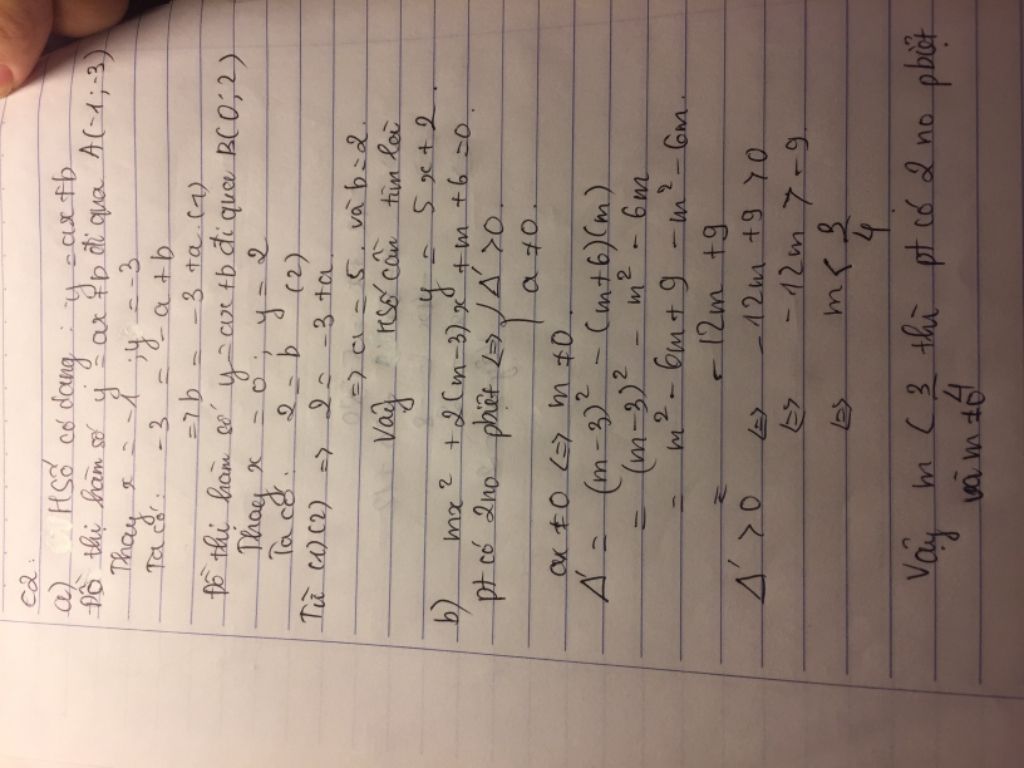 C2.
a) HSố có dạng : y = ax+b
Đồ thị hàm số y = ax+b đi qua A(-1;-3)
Thay x = -1 ; y = -3
Ta có: -3 = -a+b
=> b = -3+a (1)
Đồ thị hàm số y = ax+b đi qua B(0;2)
Thay x = 0 ; y = 2
Ta có: 2 = b (2)
Từ (1)(2) => 2 = -3+a
=> a = 5 và b = 2
Vậy HSố cần tìm là
y = 5x+2.
b) mx² + 2(m-3)x + m + 6 = 0
pt có 2 no phbiệt <=> { Δ' > 0
a ≠ 0.
a ≠ 0 <=> m ≠ 0.
Δ' = (m-3)² - (m+6)(m)
= (m-3)² - m² - 6m
= m² - 6m + 9 - m² - 6m
= -12m + 9
Δ' > 0 <=> -12m + 9 > 0
<=> -12m > -9
<=> m < 3/4
Vậy m < 3/4 thì pt có 2 no pbiệt
và m ≠ 0